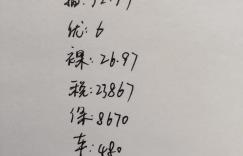 优:6
裸:26.97
税:23867
保:8670
车:480